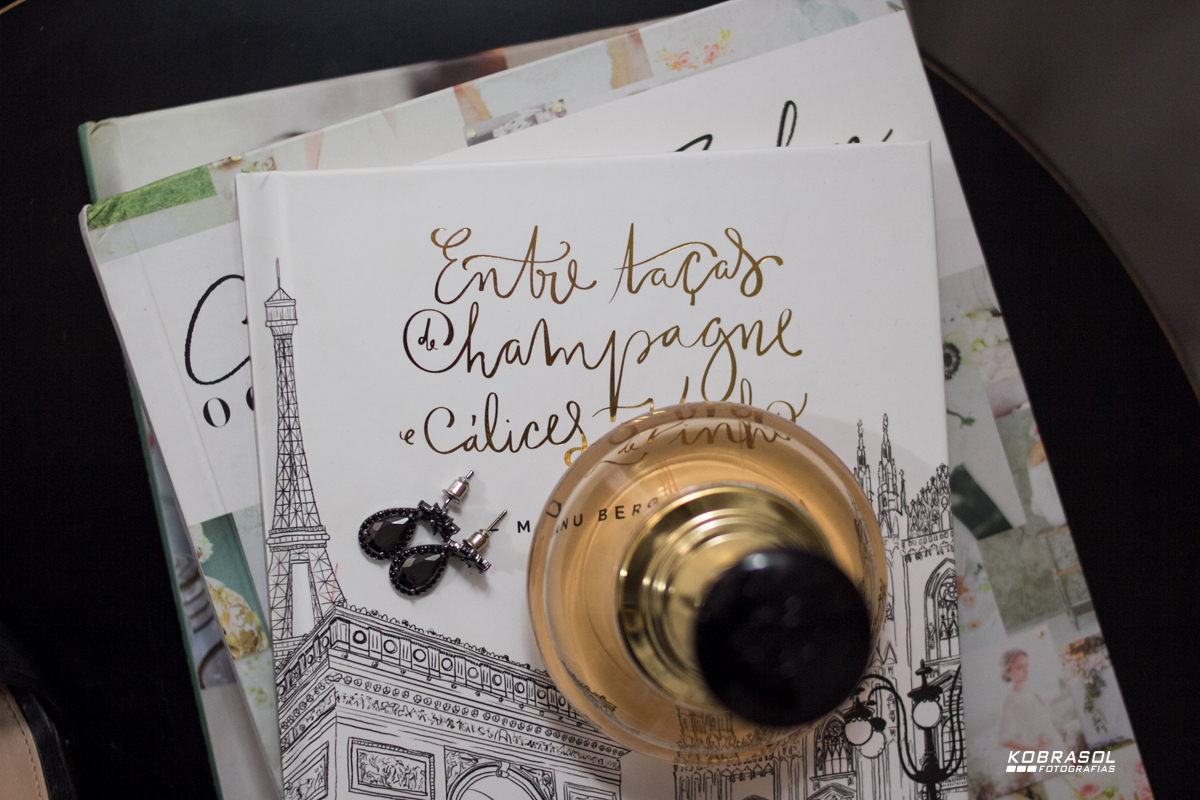 Entre taças
de Champagne
e Cálices de Vinho
MANU BERG
KOBRASOL
FOTOGRAFIAS